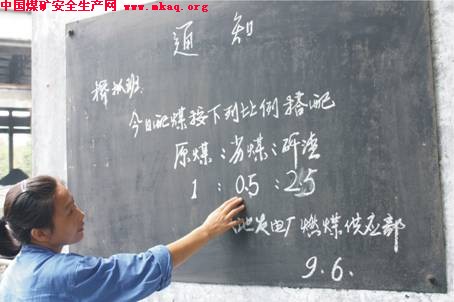 中国煤矿安全生产网 www.mkaq.org
通知
班:
今日配煤按下列比例搭配
原煤:劣煤:矸渣
1 : 0.5 : 2.5
发电厂燃煤供应部
9.6.